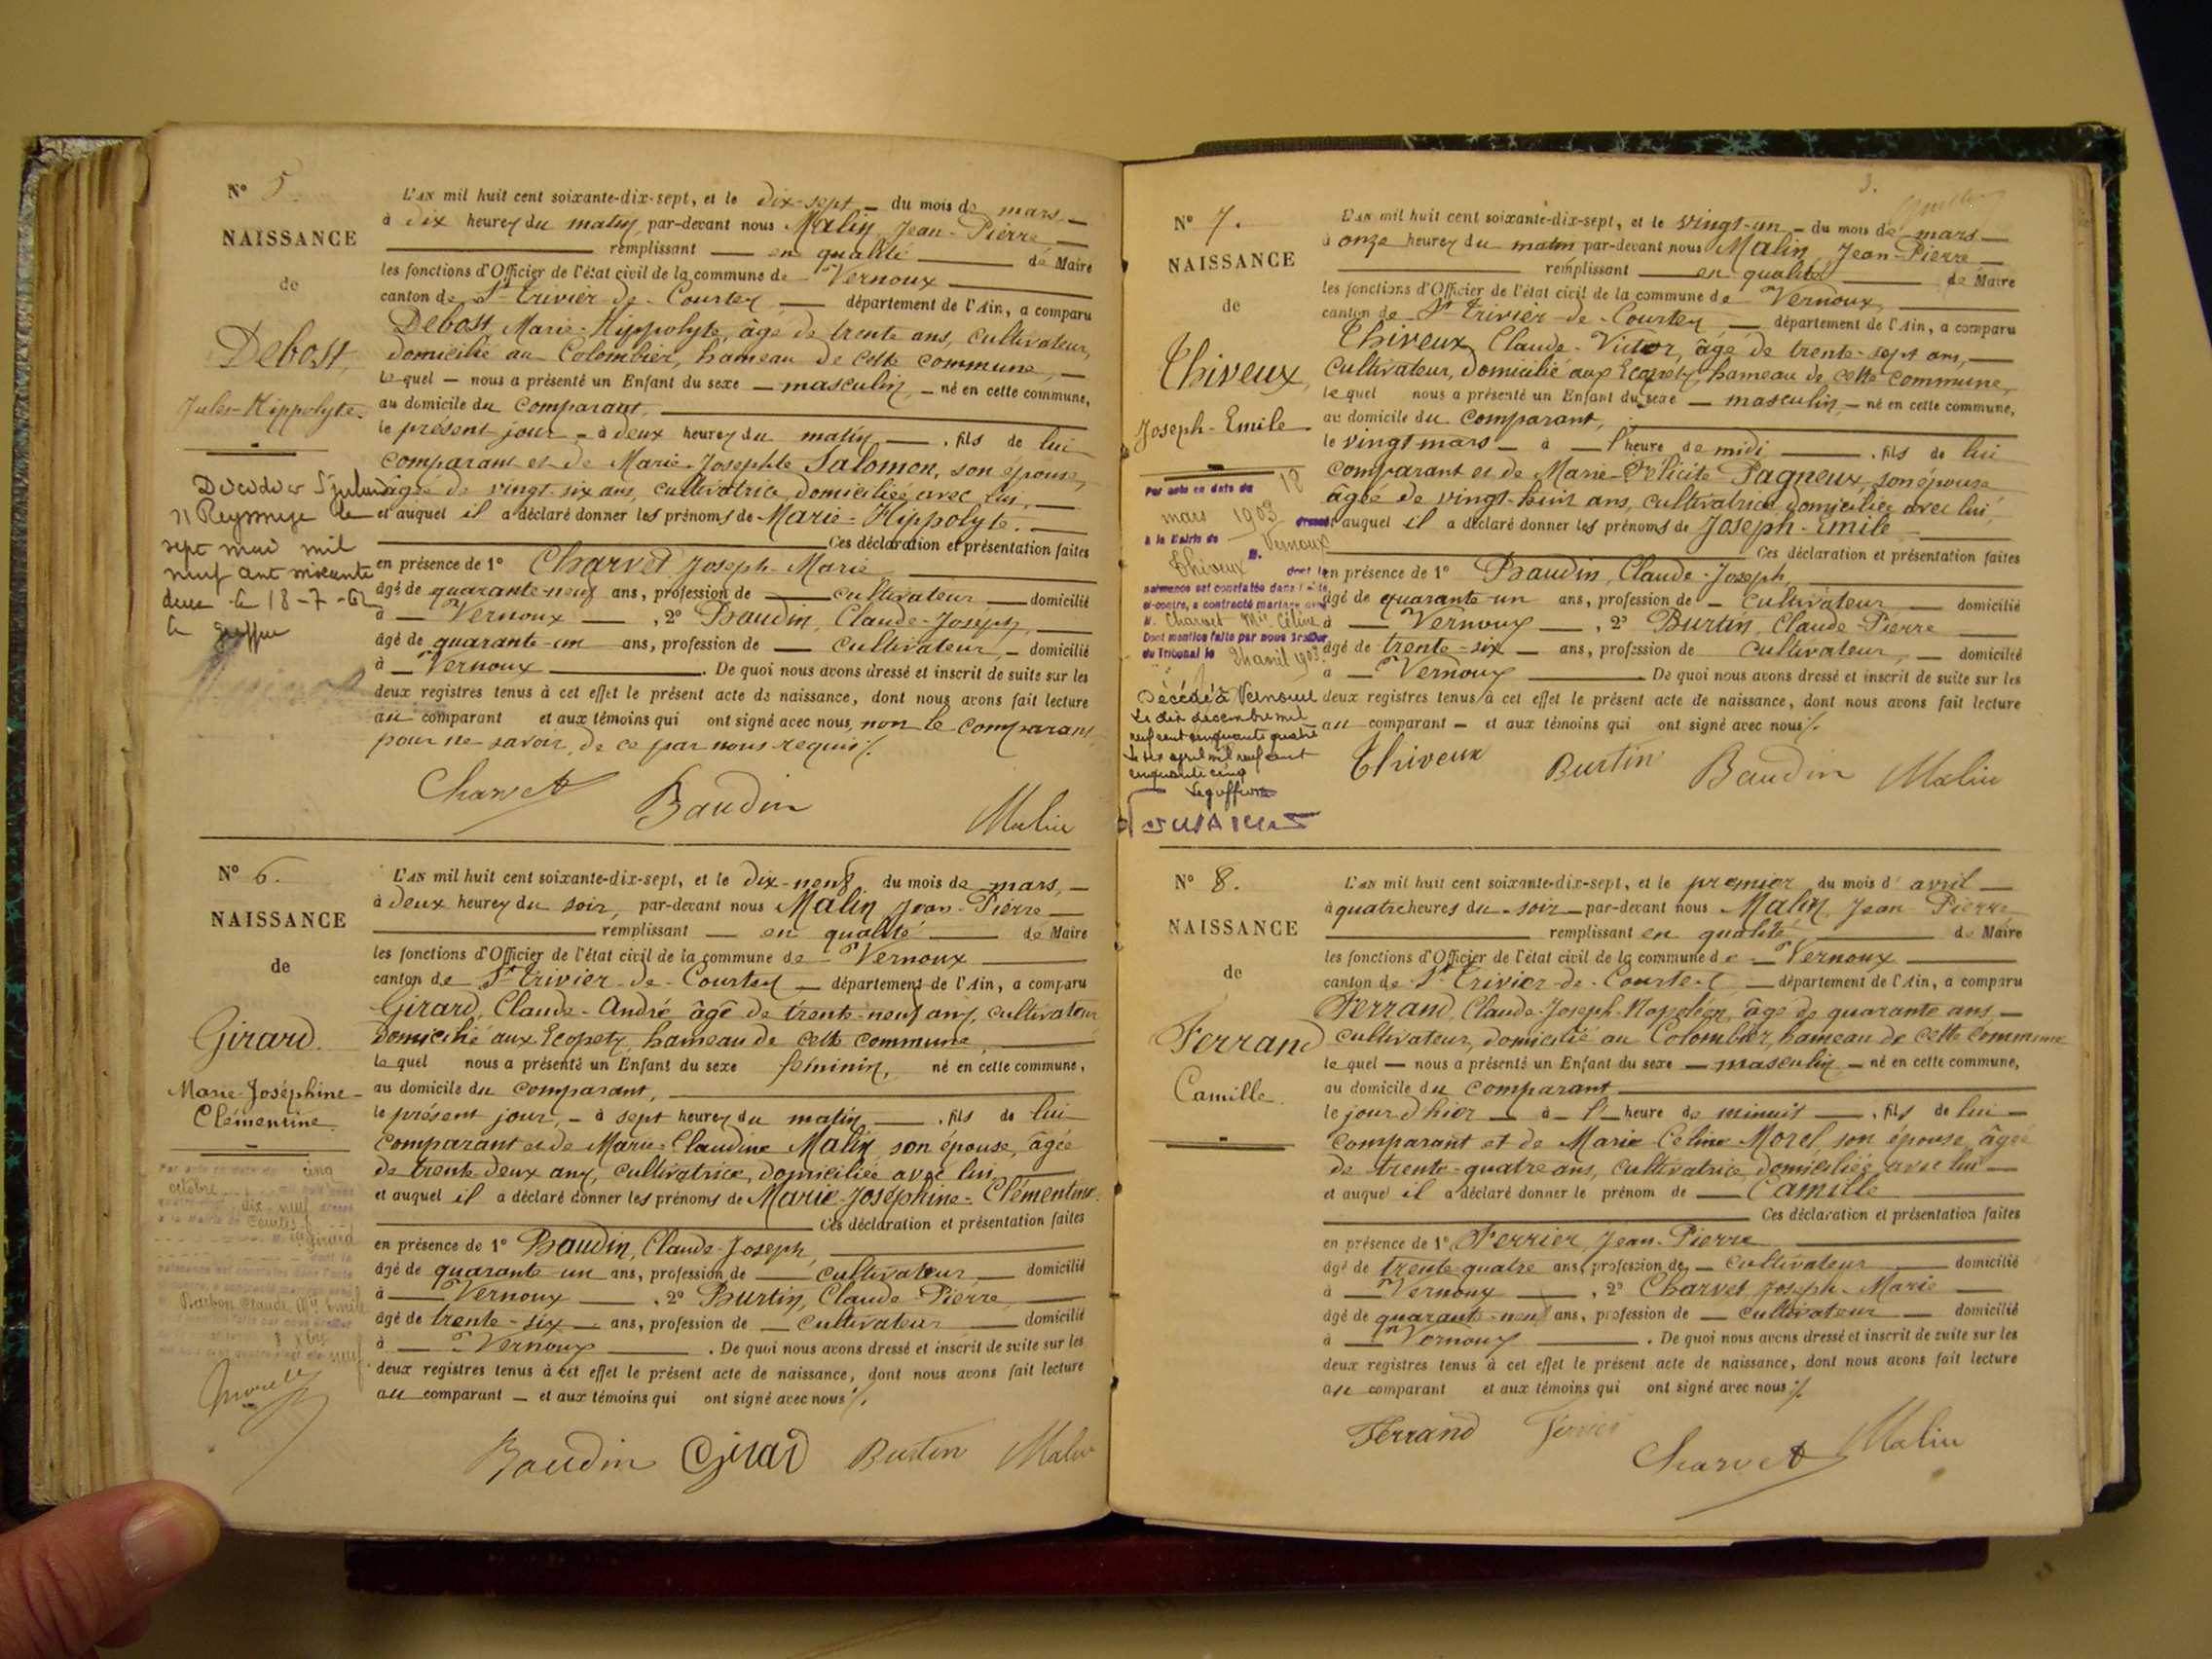 N° 5.
NAISSANCE
de
Debost,
Jules-Hippolyte.
sept mai mil
18-7-62
L'AN mil huit cent soixante-dix-sept, et le dix-sept du mois de mars,
à dix heures du matin, par-devant nous Malin, Jean-Pierre
remplissant en qualité de Maire
les fonctions d'Officier de l'état civil de la commune de Vernoux
canton de St Trivier-de-Courtes département de l'Ain, a comparu
Debost, Marie-Hippolyte, âgé de trente ans, cultivateur,
domicilié au Colombier, hameau de cette commune,
lequel nous a présenté un Enfant du sexe masculin, né en cette commune,
au domicile du comparant,
le présent jour à deux heures du matin, fils de lui
comparant et de Marie-Josephte Salomon, son épouse,
âgée de vingt-six ans, cultivatrice, domiciliée avec lui,
et auquel il a déclaré donner les prénoms de Marie-Hippolyte.
Ces déclaration et présentation faites
en présence de 1° Charvet, Joseph-Marie
âgé de quarante-neuf ans, profession de cultivateur domicilié
à Vernoux, 2° Baudin, Claude-Joseph,
âgé de quarante-un ans, profession de cultivateur, domicilié
à Vernoux. De quoi nous avons dressé et inscrit de suite sur les
deux registres tenus à cet effet le présent acte de naissance, dont nous avons fait lecture
au comparant et aux témoins qui ont signé avec nous, non le comparant
pour ne savoir, de ce par nous requis ./.
Charvet Baudin Malin
N° 6.
NAISSANCE
de
Girard.
Marie-Joséphine-
Clémentine.
cinq
octobre
dix-neuf
Girard
Barbon Claude, Mie Emile
L'AN mil huit cent soixante-dix-sept, et le dix-neuf du mois de mars,
à deux heures du soir, par-devant nous Malin, Jean-Pierre
remplissant en qualité de Maire
les fonctions d'Officier de l'état civil de la commune de Vernoux
canton de St Trivier-de-Courtes département de l'Ain, a comparu
Girard, Claude-André âgé de trente-neuf ans, cultivateur
domicilié aux Ecopets, hameau de cette commune,
lequel nous a présenté un Enfant du sexe féminin, né en cette commune,
au domicile du comparant,
le présent jour, à sept heures du matin, fils de lui
comparant et de Marie-Claudine Malin, son épouse, âgée
de trente-deux ans, cultivatrice, domiciliée avec lui,
et auquel il a déclaré donner les prénoms de Marie-Joséphine-Clémentine.
Ces déclaration et présentation faites
en présence de 1° Baudin, Claude-Joseph,
âgé de quarante-un ans, profession de cultivateur, domicilié
à Vernoux, 2° Burtin, Claude-Pierre
âgé de trente-six ans, profession de cultivateur domicilié
à Vernoux. De quoi nous avons dressé et inscrit de suite sur les
deux registres tenus à cet effet le présent acte de naissance, dont nous avons fait lecture
au comparant et aux témoins qui ont signé avec nous ./.
Baudin Girard Burtin Malin
3.
N° 7.
NAISSANCE
de
Thiveux,
Joseph-Emile
Par acte en date du 18
mars 1903 dressé
à la Mairie de Vernoux
M. Thiveux dont la
naissance est constatée dans l'acte
ci-contre, a contracté mariage avec
M. Charvet Mie Céline
Dont mention faite par nous Greffier
du Tribunal le 24 avril 1903.
Décédé à Vernoux
le dix décembre mil
neuf cent cinquante quatre
Le six avril mil neuf cent
cinquante cinq
Le greffier
L'AN mil huit cent soixante-dix-sept, et le vingt-un du mois de mars
à onze heures du matin par-devant nous Malin, Jean-Pierre
remplissant en qualité de Maire
les fonctions d'Officier de l'état civil de la commune de Vernoux
canton de St Trivier-de-Courtes département de l'Ain, a comparu
Thiveux, Claude-Victor, âgé de trente-sept ans,
cultivateur, domicilié aux Ecopets, hameau de cette commune,
lequel nous a présenté un Enfant du sexe masculin, né en cette commune,
au domicile du comparant,
le vingt mars à l'heure de midi, fils de lui
comparant et de Marie-Félicité Pagneux, son épouse
âgée de vingt-huit ans, cultivatrice, domiciliée avec lui
et auquel il a déclaré donner les prénoms de Joseph-Emile
Ces déclaration et présentation faites
en présence de 1° Baudin, Claude-Joseph,
âgé de quarante-un ans, profession de cultivateur domicilié
à Vernoux, 2° Burtin, Claude-Pierre
âgé de trente-six ans, profession de cultivateur, domicilié
à Vernoux De quoi nous avons dressé et inscrit de suite sur les
deux registres tenus à cet effet le présent acte de naissance, dont nous avons fait lecture
au comparant et aux témoins qui ont signé avec nous ./.
Thiveux Burtin Baudin Malin
N° 8.
NAISSANCE
de
Ferrand
Camille.
L'AN mil huit cent soixante-dix-sept, et le premier du mois d'avril
à quatre heures du soir par-devant nous Malin, Jean Pierre
remplissant en qualité de Maire
les fonctions d'Officier de l'état civil de la commune de Vernoux
canton de St Trivier-de-Courtes département de l'Ain, a comparu
Ferrand, Claude-Joseph-Napoléon, âgé de quarante ans
cultivateur, domicilié au Colombier, hameau de cette commune
lequel nous a présenté un Enfant du sexe masculin né en cette commune,
au domicile du comparant
le jour d'hier à l'heure de minuit, fils de lui
comparant et de Marie Céline Morel, son épouse, âgée
de trente-quatre ans, cultivatrice, domiciliée avec lui
et auquel il a déclaré donner le prénom de Camille
Ces déclaration et présentation faites
en présence de 1° Ferrier, Jean-Pierre
âgé de trente quatre ans, profession de cultivateur domicilié
à Vernoux, 2° Charvet, Joseph-Marie
âgé de quarante-neuf ans, profession de cultivateur domicilié
à Vernoux. De quoi nous avons dressé et inscrit de suite sur les
deux registres tenus à cet effet le présent acte de naissance, dont nous avons fait lecture
au comparant et aux témoins qui ont signé avec nous ./.
Ferrand Ferrier Charvet Malin